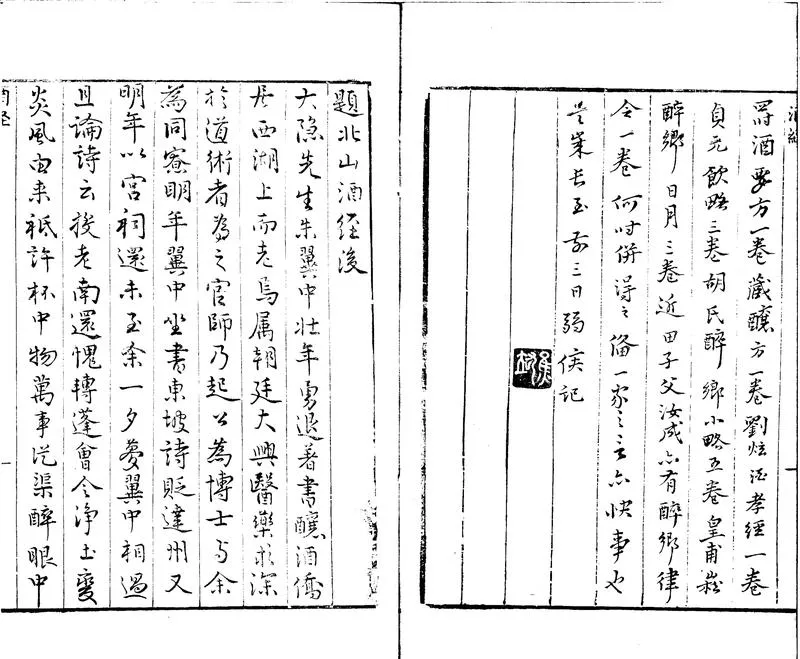 酒要方一卷藏釀方一卷劉炫酒孝經一卷
貞元飲略三卷胡氏醉鄉小略五卷皇甫崧
醉鄉日月三卷近田子父汝成亦有醉鄉律
令一卷何时併得之備一家之言亦快事也
是歲長至前三日弱侯記
題北山酒經後
大隱先生朱翼中壯年勇退著書釀酒僑
居西湖上而老焉属朝廷大興醫藥求深
於道術者為之官師乃起公為博士与余
為同寮明年翼中坐書東坡詩貶達州又
明年以宮祠還未至余一夕夢翼中相過
且論詩云投老南還愧轉蓬會令淨土變
炎風由来祗許杯中物萬事從渠醉眼中